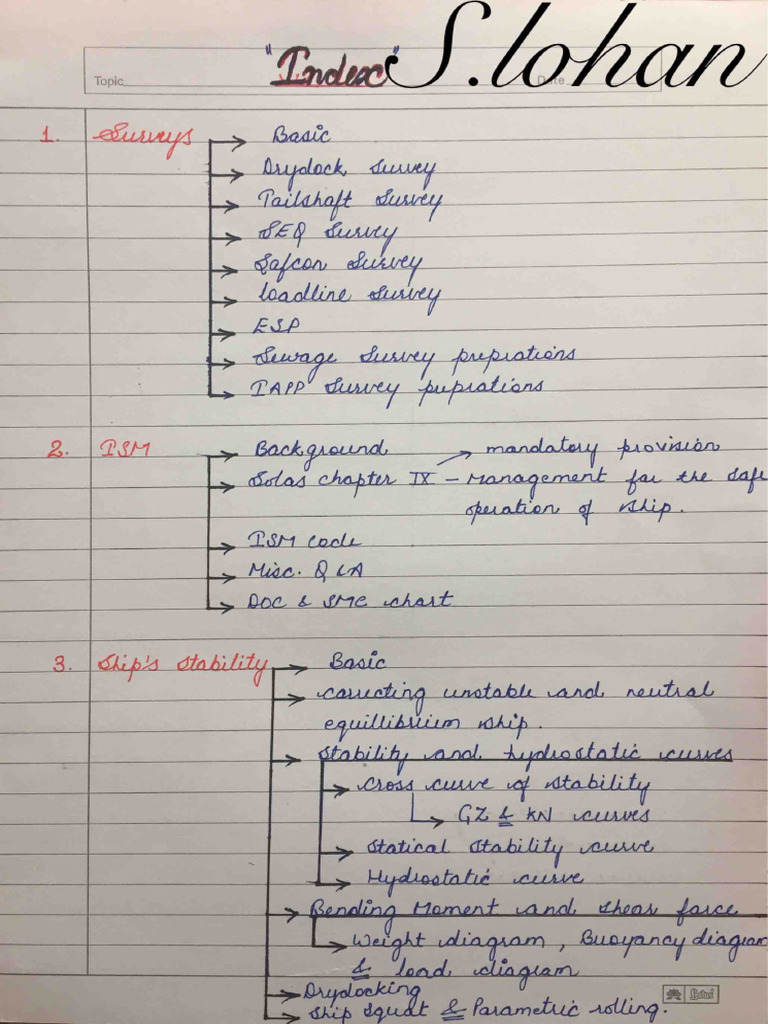 "Index" S.lohan
Topic Date
1. Surveys → Basic
→ Drydock Survey
→ Tailshaft Survey
→ SEQ Survey
→ Safcon Survey
→ loadline Survey
→ ESP
→ Sewage Survey preprations
→ IAPP Survey puprations
2. ISM → Background → mandatory provision
→ Solas chapter IX - Management for the safe
operation of ship.
→ ISM code
→ Misc. Q & A
→ DOC & SMC chart
3. Ship's stability → Basic
→ correcting unstable and neutral
equillibrium ship.
→ Stability and hydrostatic curves
→ cross curve of stability
→ GZ & KN curves
→ Statical stability curve
→ Hydrostatic curve
→ Bending Moment and shear force
→ Weight diagram, Buoyancy diagram
& load diagram
→ Drydocking
→ Ship Squat & Parametric rolling.
Lotus